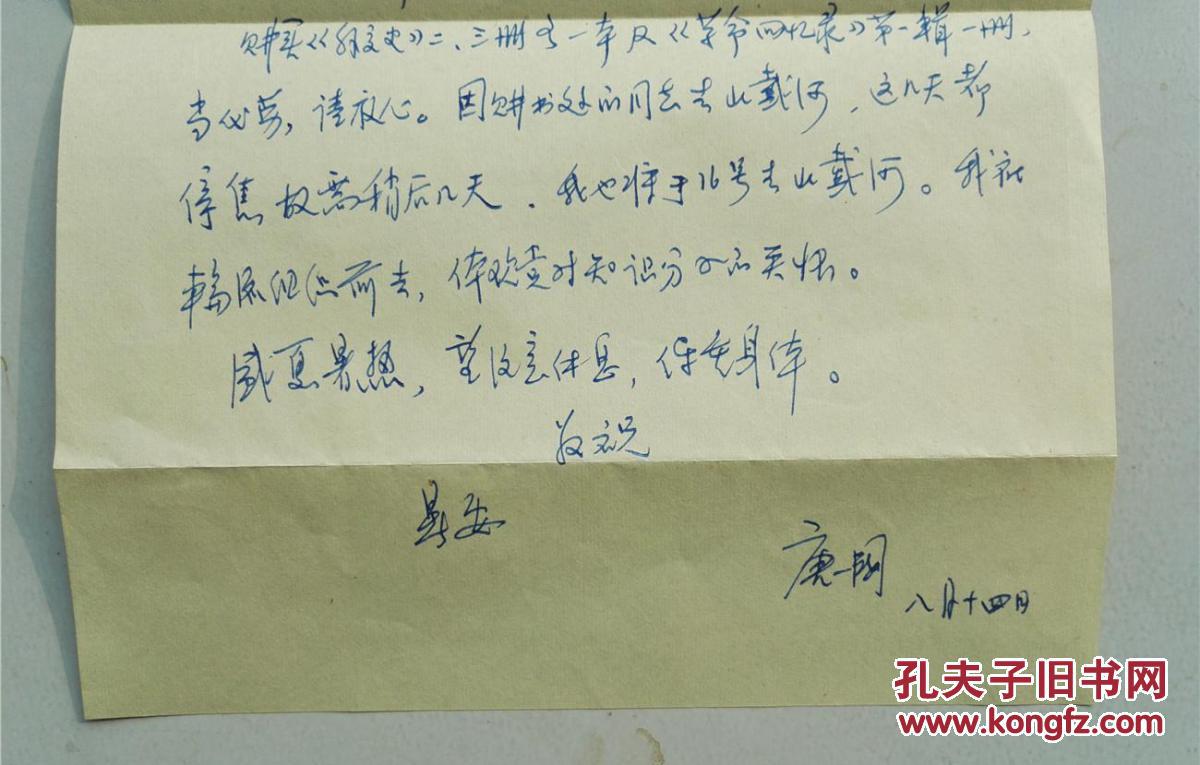 购买《》二、三册各一本及《革命回忆录》第一辑一册，
当必带，请放心。因购书处的同志去北戴河，这几天都
停售故需稍后几天，我也将于16号去北戴河。我社
轮流组织前去，体现党对知识分子的关怀。
盛夏暑热，望注意休息，保重身体。
敬祝
暑安
唐一国
八月十四日
孔夫子旧书网
www.kongfz.com